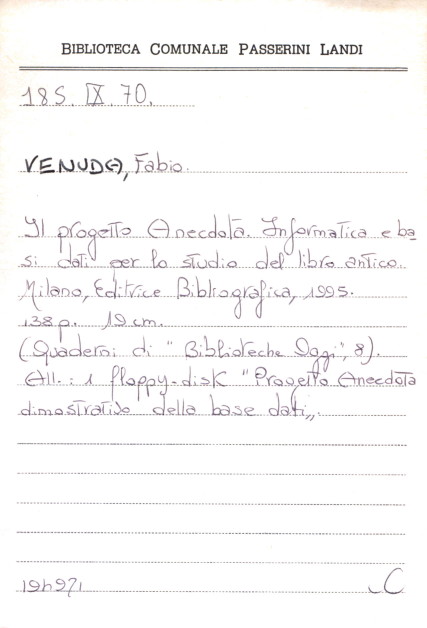 BIBLIOTECA COMUNALE PASSERINI LANDI
18S. IX. 70.
VENUDA, Fabio.
Il progetto Anecdota. Informatica e ba
si dati per lo studio del libro antico.
Milano, Editrice Bibliografica, 1995.
138 p. 19 cm.
(Quaderni di "Biblioteche Oggi", 8).
All.: 1 floppy-disk "Progetto Anecdota
dimostrativo della base dati".
C